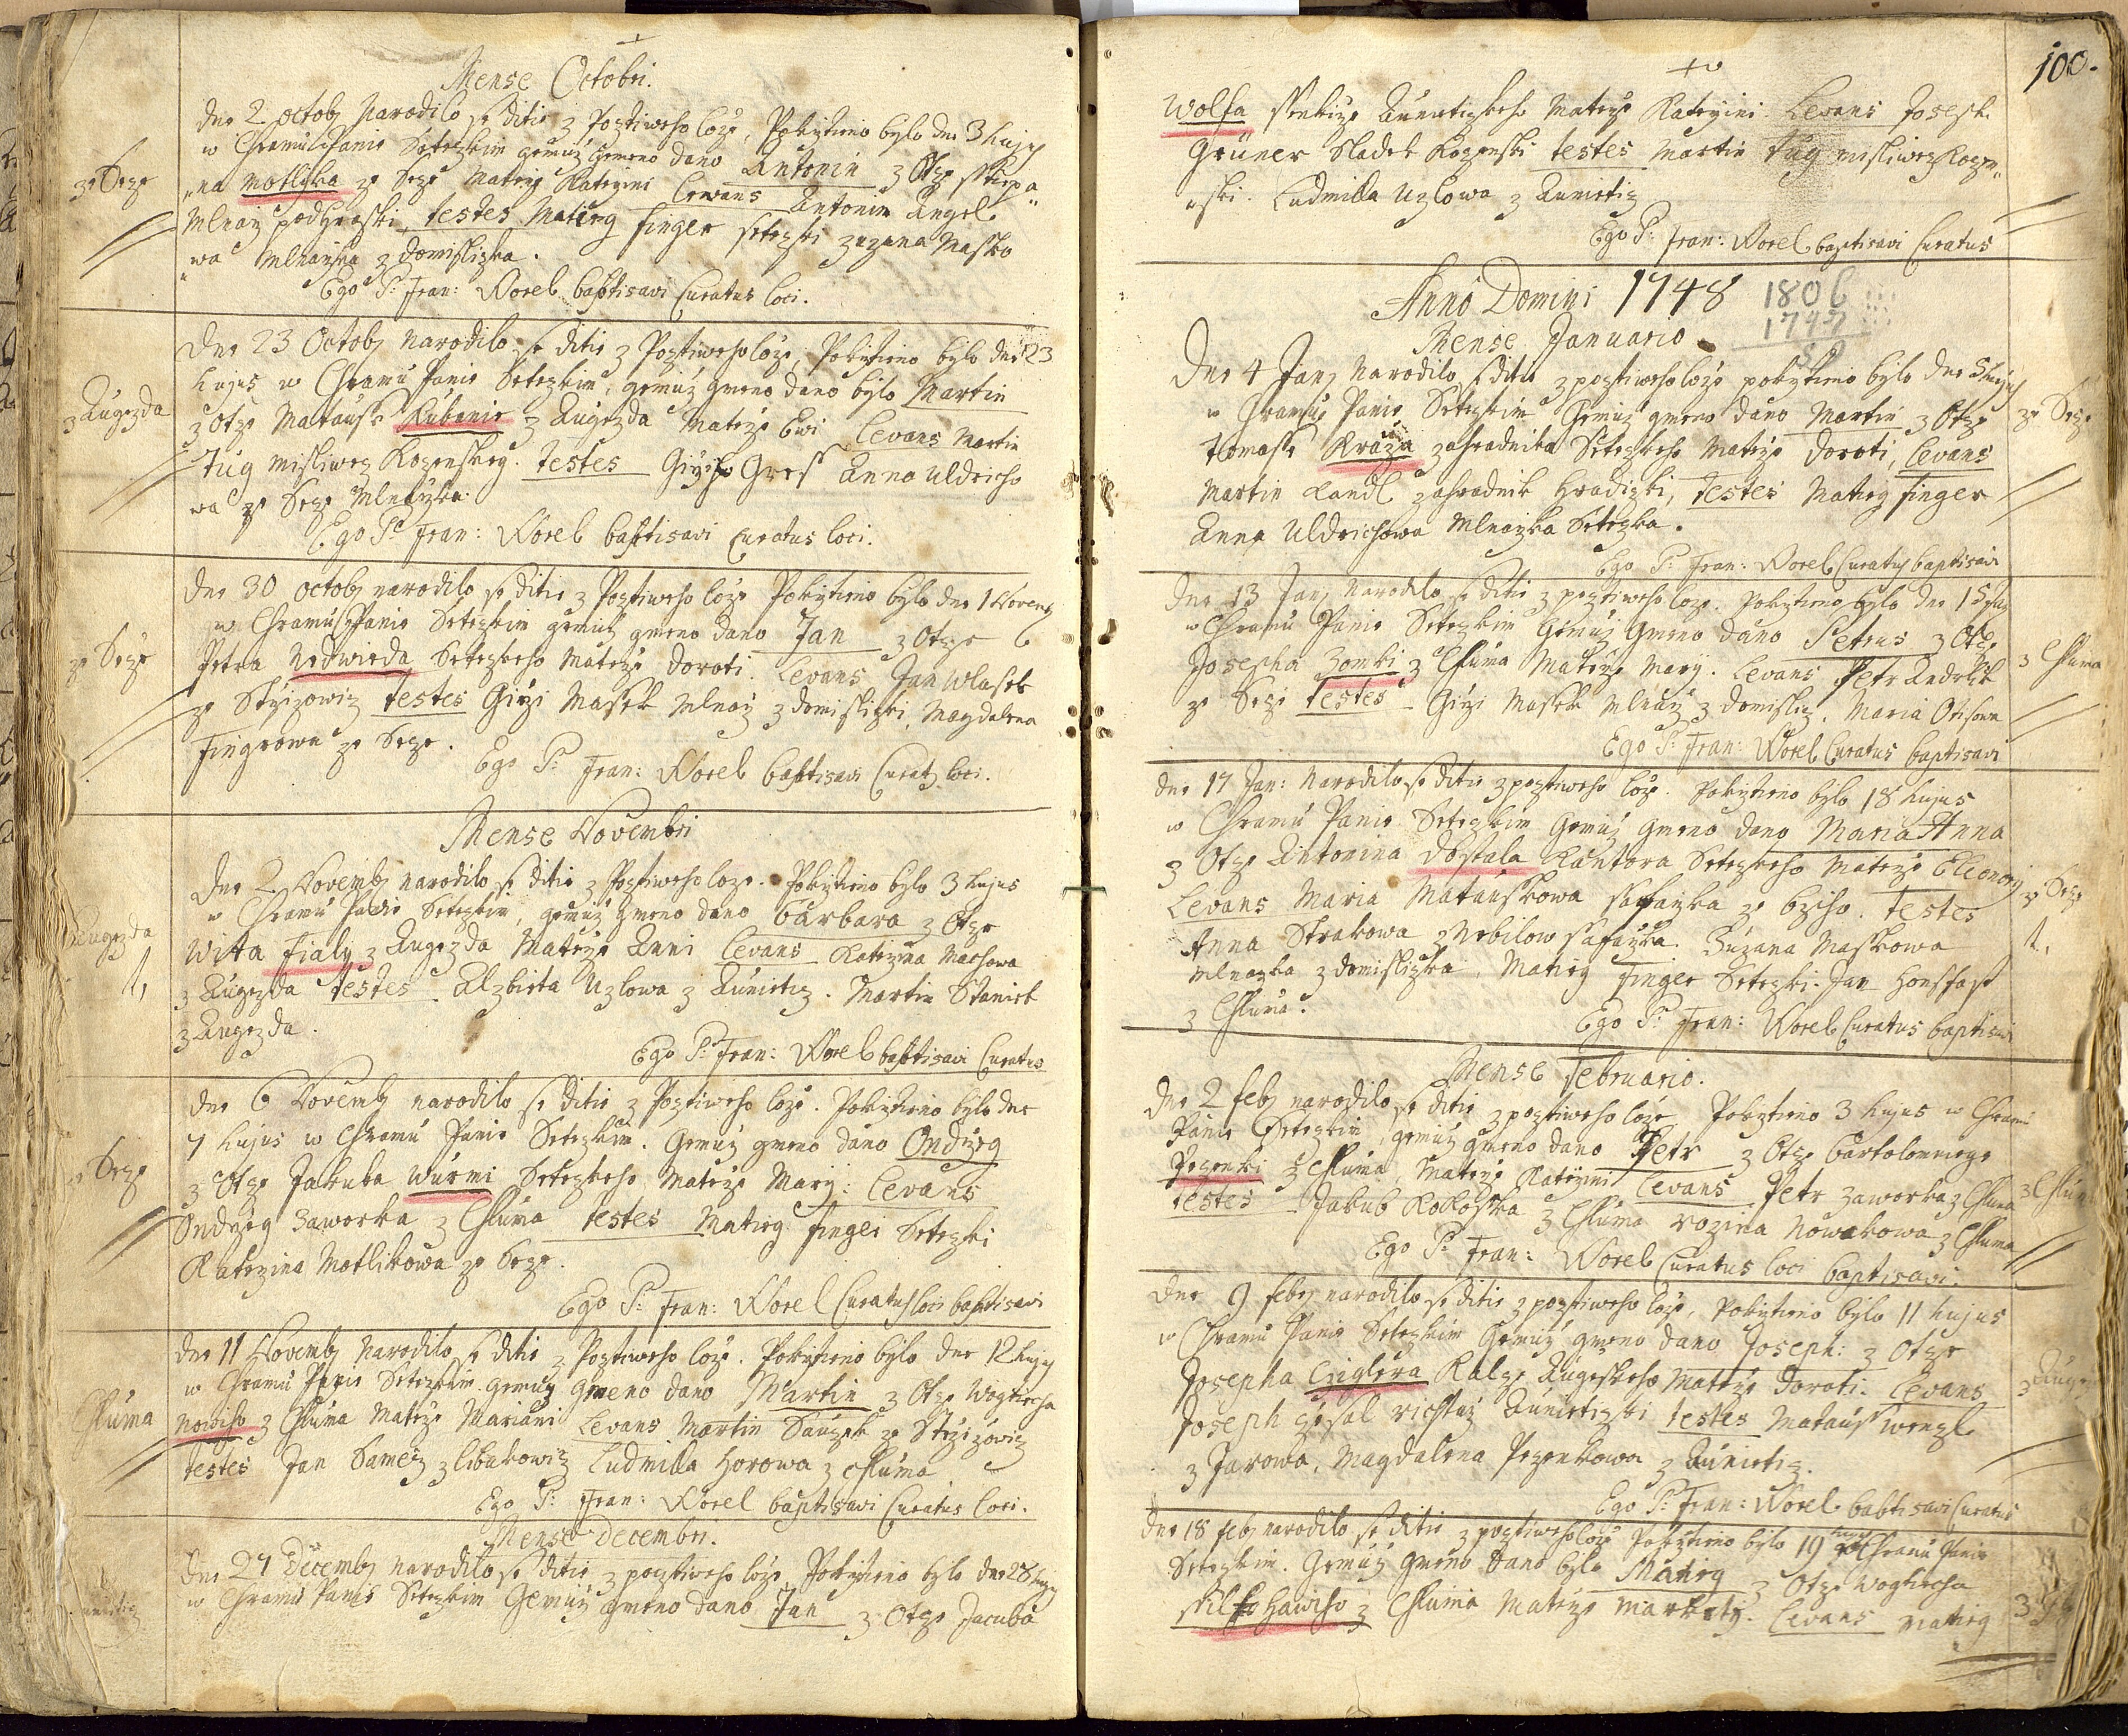 Mense Octobri.
ze Seze
Dne 2 octob narodilo se ditie z Poztiweho loze, Pokrztieno bylo dne 3 hujus
w Chramu Panie Setezkim gemuz gmeno dano Antonin z Otze Sstiepa"
"na Motlika ze Seze Materze Kateržini Levans Antonin Angel
Mlnarž podhraski, testes Matieg finger setezki zuzana Masko
"wa Mlnařka z Domislizka.
Ego P: Fran: Worel baptisavi Curatus loci.
z Augezda
Dne 23 Octob narodilo se ditie z Poztiweho loze, Pokrztieno bylo dne 23
hujus w Chramu Panie Setezkim, gemuz gmeno dano bylo Martin
z Otze Matausse Kubanie z Augezda Materze Ewi Levans Martin
Tug misliwez Kozenskey. testes Girži Gres Anna Uldricho
wa ze Seze Mlnařka.
Ego P: Fran: Worel baptisavi Curatus loci.
ze Seze
Dne 30 octob narodilo se ditie z Poztiweho loze Pokrztieno bylo dne 1 Novemb
w Chramu Panie Setezkim gemuz gmeno dano Jan z Otze
Petra Nedwieda Setezkeho Materze Doroti. Levans Jan Wlasek
ze Stržizowiz testes Girži Masek Mlnarž z Domislizki, Magdalena
Fingrowa ze Seze.
Ego P: Fran: Worel baptisavi Curat loci.
Mense Novembri
Augezda
Dne 2 Novemb narodilo se ditie z Poztiweho loze. Pokrztieno bylo 3 hujus
w Chramu Panie Setezkim, gemuz gmeno dano barbara z Otze
Wita Fialy z Augezda Materze Anni Levans Katerzina Machowa
z Augezda testes Alzbieta Uzlowa z Aunietiz. Martin Staniek
z Augezda.
Ego P: Fran: Worel baptisavi Curatus
Seze
Dne 6 Novemb narodilo se ditie z Poztiweho loze. Pokrztieno bylo dne
7 hujus w Chramu Panie Setezkim. Gemuz gmeno dano Ondrzeg
z Otze Jakuba Wurmi Setezkeho Materze Mary: Levans
Ondrzeg Zaworka z Chluma testes Matieg finger Setezki
Katerzina Motlikowa ze Seze.
Ego P: Fran: Worel Curatus loci baptisavi
Chluma
Dne 11 Novemb Narodilo se ditie z Poztiweho loze. Pokrztieno bylo dne 12 hujus
w Chramu Panie Setezkim gemuz gmeno dano Martin z Otze Wogtiecha
Noweho z Chluma Materze Mariani Levans Martin Sauzek ze Stržizowiz
testes Jan Samez z libakowiz Ludmila Horowa z Chluma
Ego P: Fran: Worel baptisavi Curatus loci.
Mense Decembri.
Dne 27 Decemb narodilo se ditie z poztiweho loze, Pokrztieno bylo dne 28 hujus
w Chramu Panie Setezkim Gemuz gmeno dano Jan z Otze Jacuba
100.
Wolfa Aunietizkeho Materze Kateržini. Levans Joseph
Gruner Sladek Kozenski testes Martin Tug misliwez Kozen"
"ski. Ludmila Uzlowa z Aunietiz
Ego P: Fran: Worel baptisavi Curatus
Anno Domini 1748
1806
1747
Mense Januario
Dne 4 Jan narodilo se ditie z poztiweho loze pokrztieno bylo dne 5 hujus
w Chramu Panie Setezkim Gemuz gmeno dano Martin z Otze
ze Seze
Tomasse Krazi zahradnika Setezkeho Materze Doroti, Levans
Martin Randl zahradnik Hradizki, testes Matieg finger
Anna Uldrichowa Mlnařka Setezka.
Ego P: Fran: Worel Curatus baptisavi
Dne 13 Jan narodilo se ditie z poztiweho loze. Pokrztieno bylo dne 15 huj
w Chramu Panie Setezkim Gemuz Gmeno dano Petrus z Otze
z Chluma
Josepha Zomki z Chluma Materze Mary. Levans Petr Andrlik
ze Seze testes Girži Masek Mlnarž z Domisliz. Maria Otisowa
Ego P: Fran: Worel Curatus baptisavi
Dne 17 Jan: Narodilo se ditie z poztiweho loze. Pokrztieno bylo 18 hujus
w Chramu Panie Setezkim Gemuz Gmeno dano Maria Anna
z Otze Antonina Dostala Kantora Setezkeho Materze Eleonory
ze Seze
Levans Maria Matauskowa saffařka ze bziho. Testes
Anna Strakowa z Nebilow safařka. Zuzana Maskowa
Mlnařka z Domislizka, Matieg Finger Setezki. Jan Honsfast
z Chluma.
Ego P: Fran: Worel Curatus baptisavi
Mense Februario.
Dne 2 feb narodilo se ditie z poztiweho loze Pokrztieno 3 hujus w Chramu
Panie Setezkim, gemuz gmeno dano Petr z Otze bartolomiege
Pezenki z Chluma, Materze Kateržini Levans Petr Zaworka z Chluma
z Chlum
testes Jakub Kokoska z Chluma rozina Nowakowa z Chluma
Ego P: Fran: Worel Curatus loci baptisavi.
Dne 9 feb narodilo se ditie z poztiweho loze, Pokrztieno bylo 11 hujus
w Chramu Panie Setezkim Gemuz gmeno dano Joseph: z Otze
z Auge
Josepha Cziglera Kalze Augeskeho Materze Doroti. Levans
Joseph gesal richtarž Aunietizki testes Mataus Wenzl
z Jarowa, Magdalena Pezenkowa z Aunietiz.
Ego P: Fran: Worel baptisavi Curatus
Dne 18 feb narodilo se ditie z poztiweho loze Pokrztieno bylo 19 hujus w Chramu Panie
Setezkim. Gemuz Gmeno dano bylo Matieg z Otze Wogtiecha
z Chluma Materze Markety. Levans Matieg